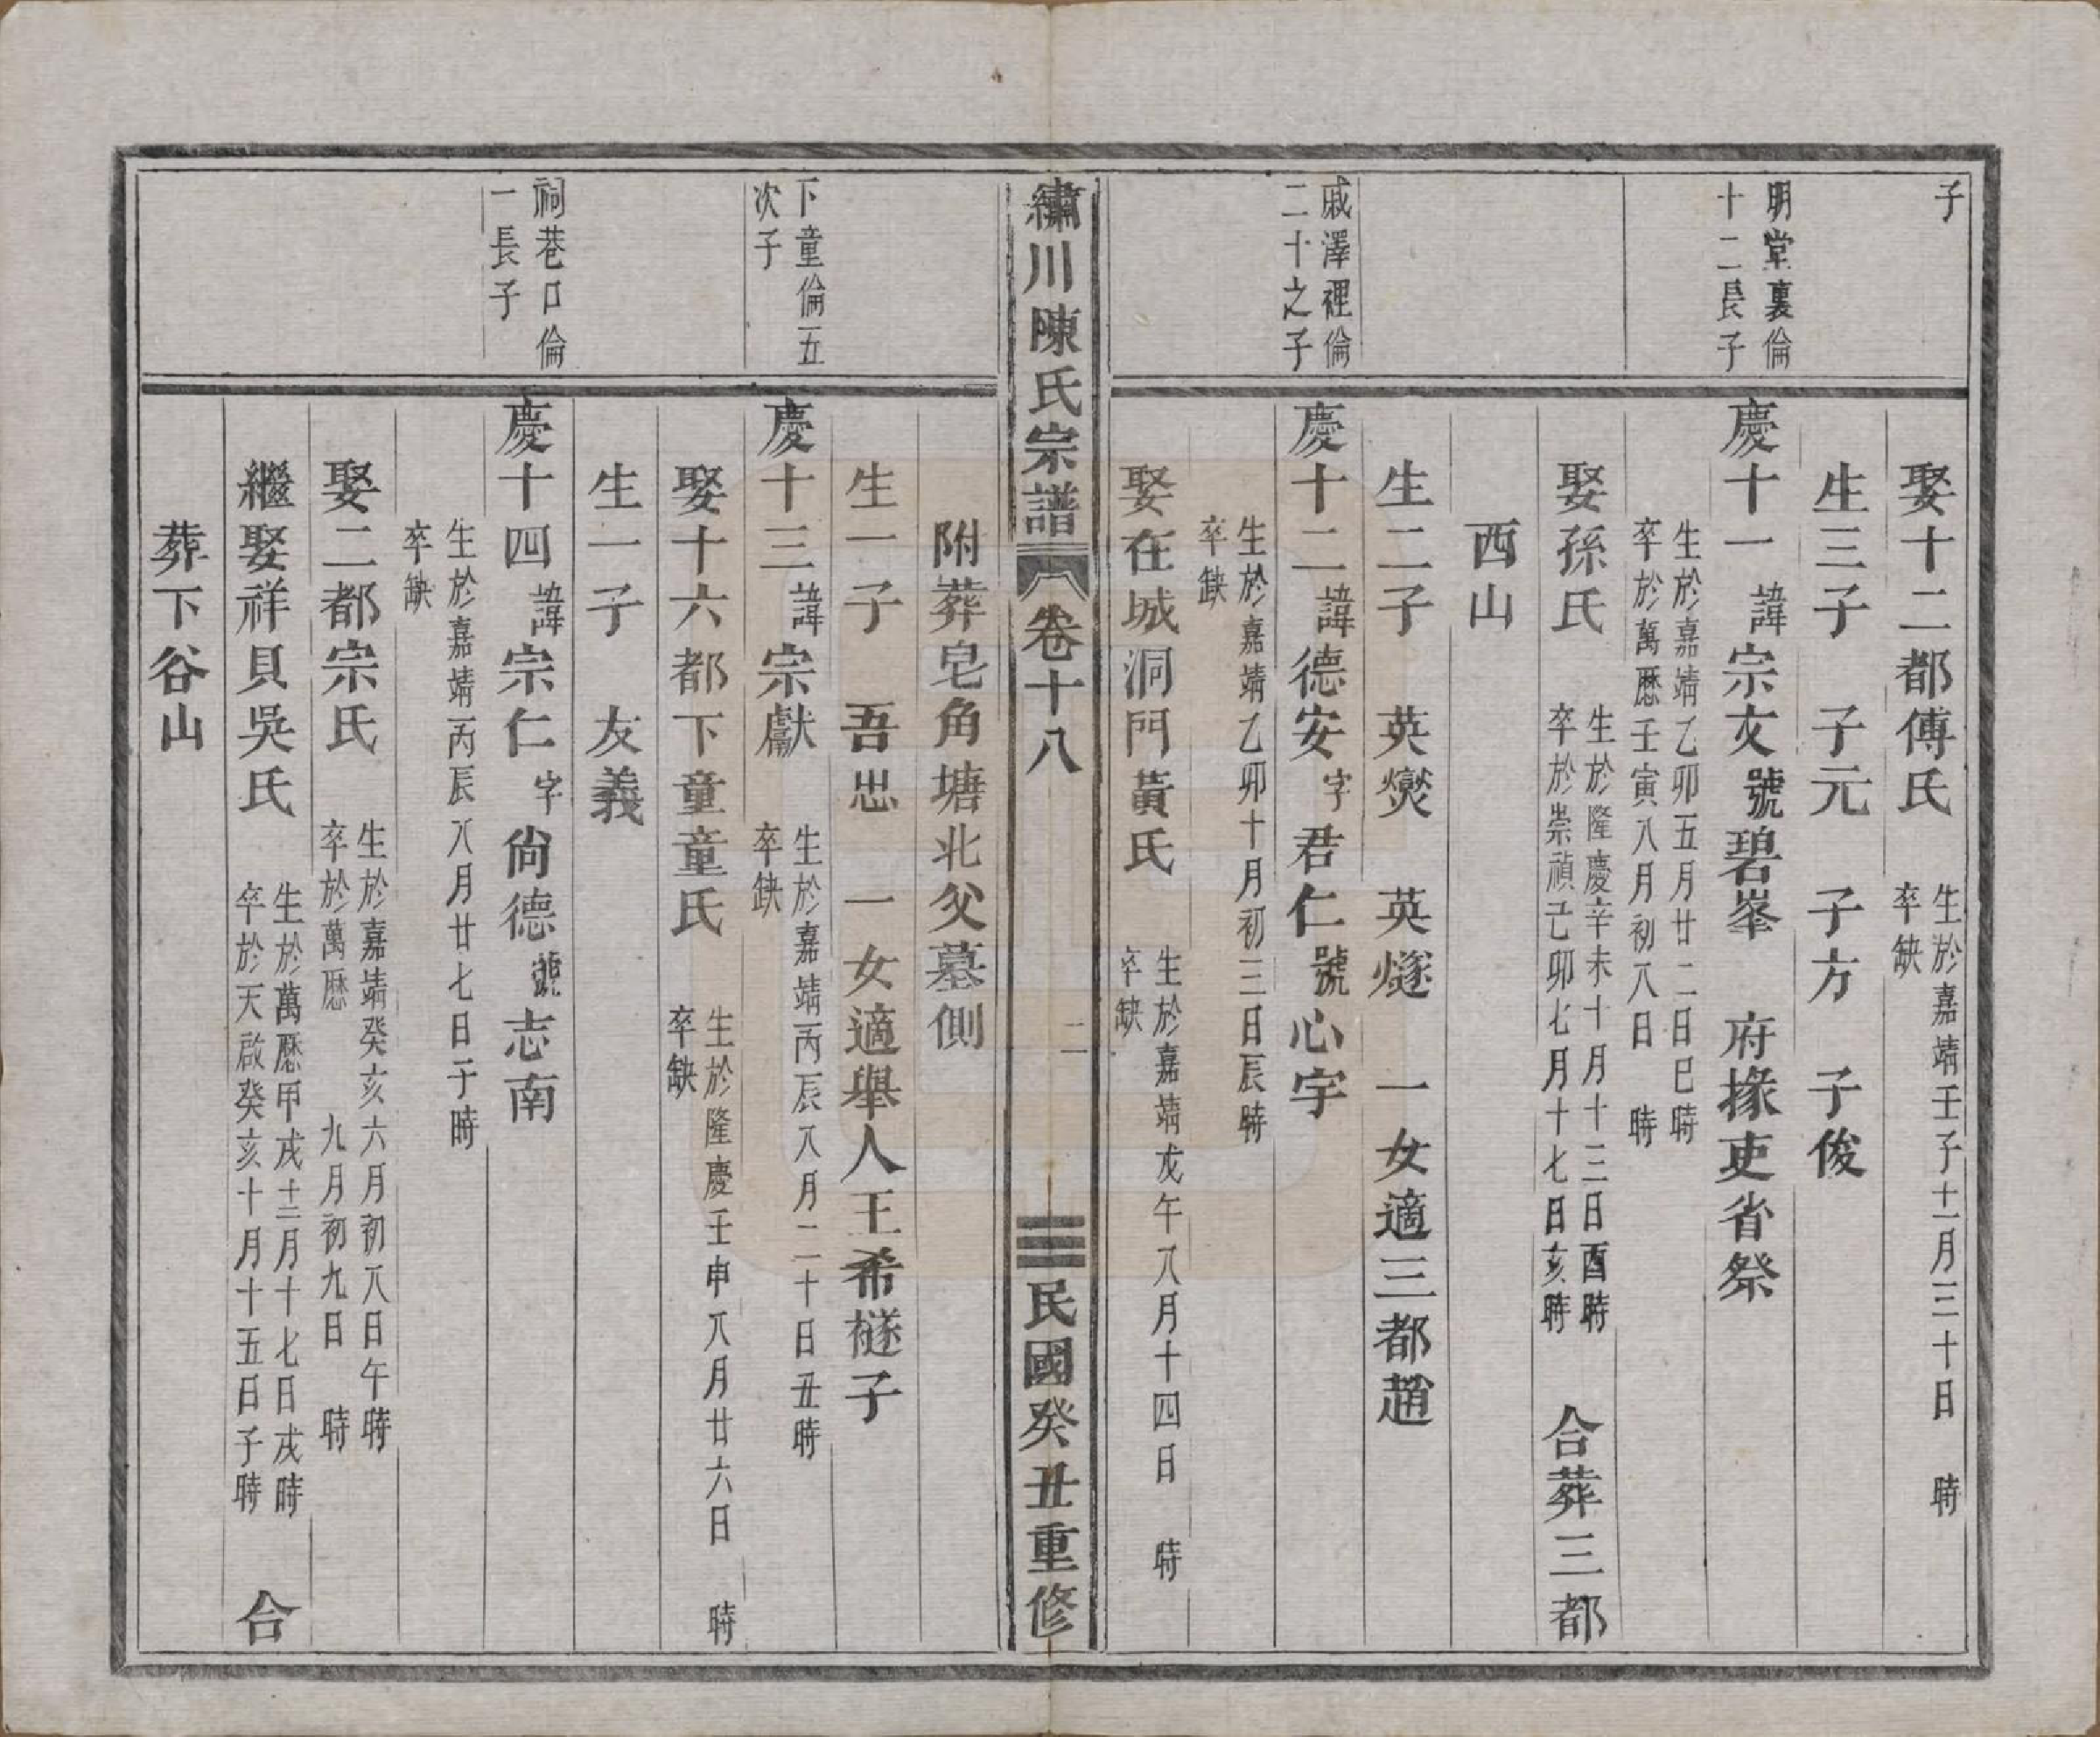 子
娶十二都傅氏
生於嘉靖壬子十一月三十日 時
卒缺
生三子 子元 子方 子俊
明堂裏倫
十二長子
慶十一 諱宗文 號碧峯 府掾吏省祭
生於嘉靖乙卯五月廿二日巳時
卒於萬厯壬寅八月初八日 時
娶孫氏
生於隆慶辛未十月十三日酉時
卒於崇禎己卯七月十七日亥時
合葬三都
西山
生二子 英爕 英燧 一女適三都趙
戚澤裡倫
二十之子
慶十二 諱德安 字君仁 號心宇
生於嘉靖乙卯十月初三日辰時
卒缺
娶在城洞門黃氏
生於嘉靖戊午八月十四日 時
卒缺
繡川陳氏宗譜 卷十八 二 民國癸丑重修
附葬皂角塘北父墓側
生一子 吾思 一女適舉人王希檖子
下童倫五
次子
慶十三 諱宗獻
生於嘉靖丙辰八月二十日丑時
卒缺
娶十六都下童童氏
生於隆慶壬申八月廿六日 時
卒缺
生一子 友義
祠巷口倫
一長子
慶十四 諱宗仁 字尙德 號志南
生於嘉靖丙辰八月廿七日子時
卒缺
娶二都宗氏
生於嘉靖癸亥六月初八日午時
卒於萬厯 九月初九日 時
繼娶祥貝吳氏
生於萬厯甲戌十二月十七日戌時
卒於天啟癸亥十月十五日子時
合
葬下谷山